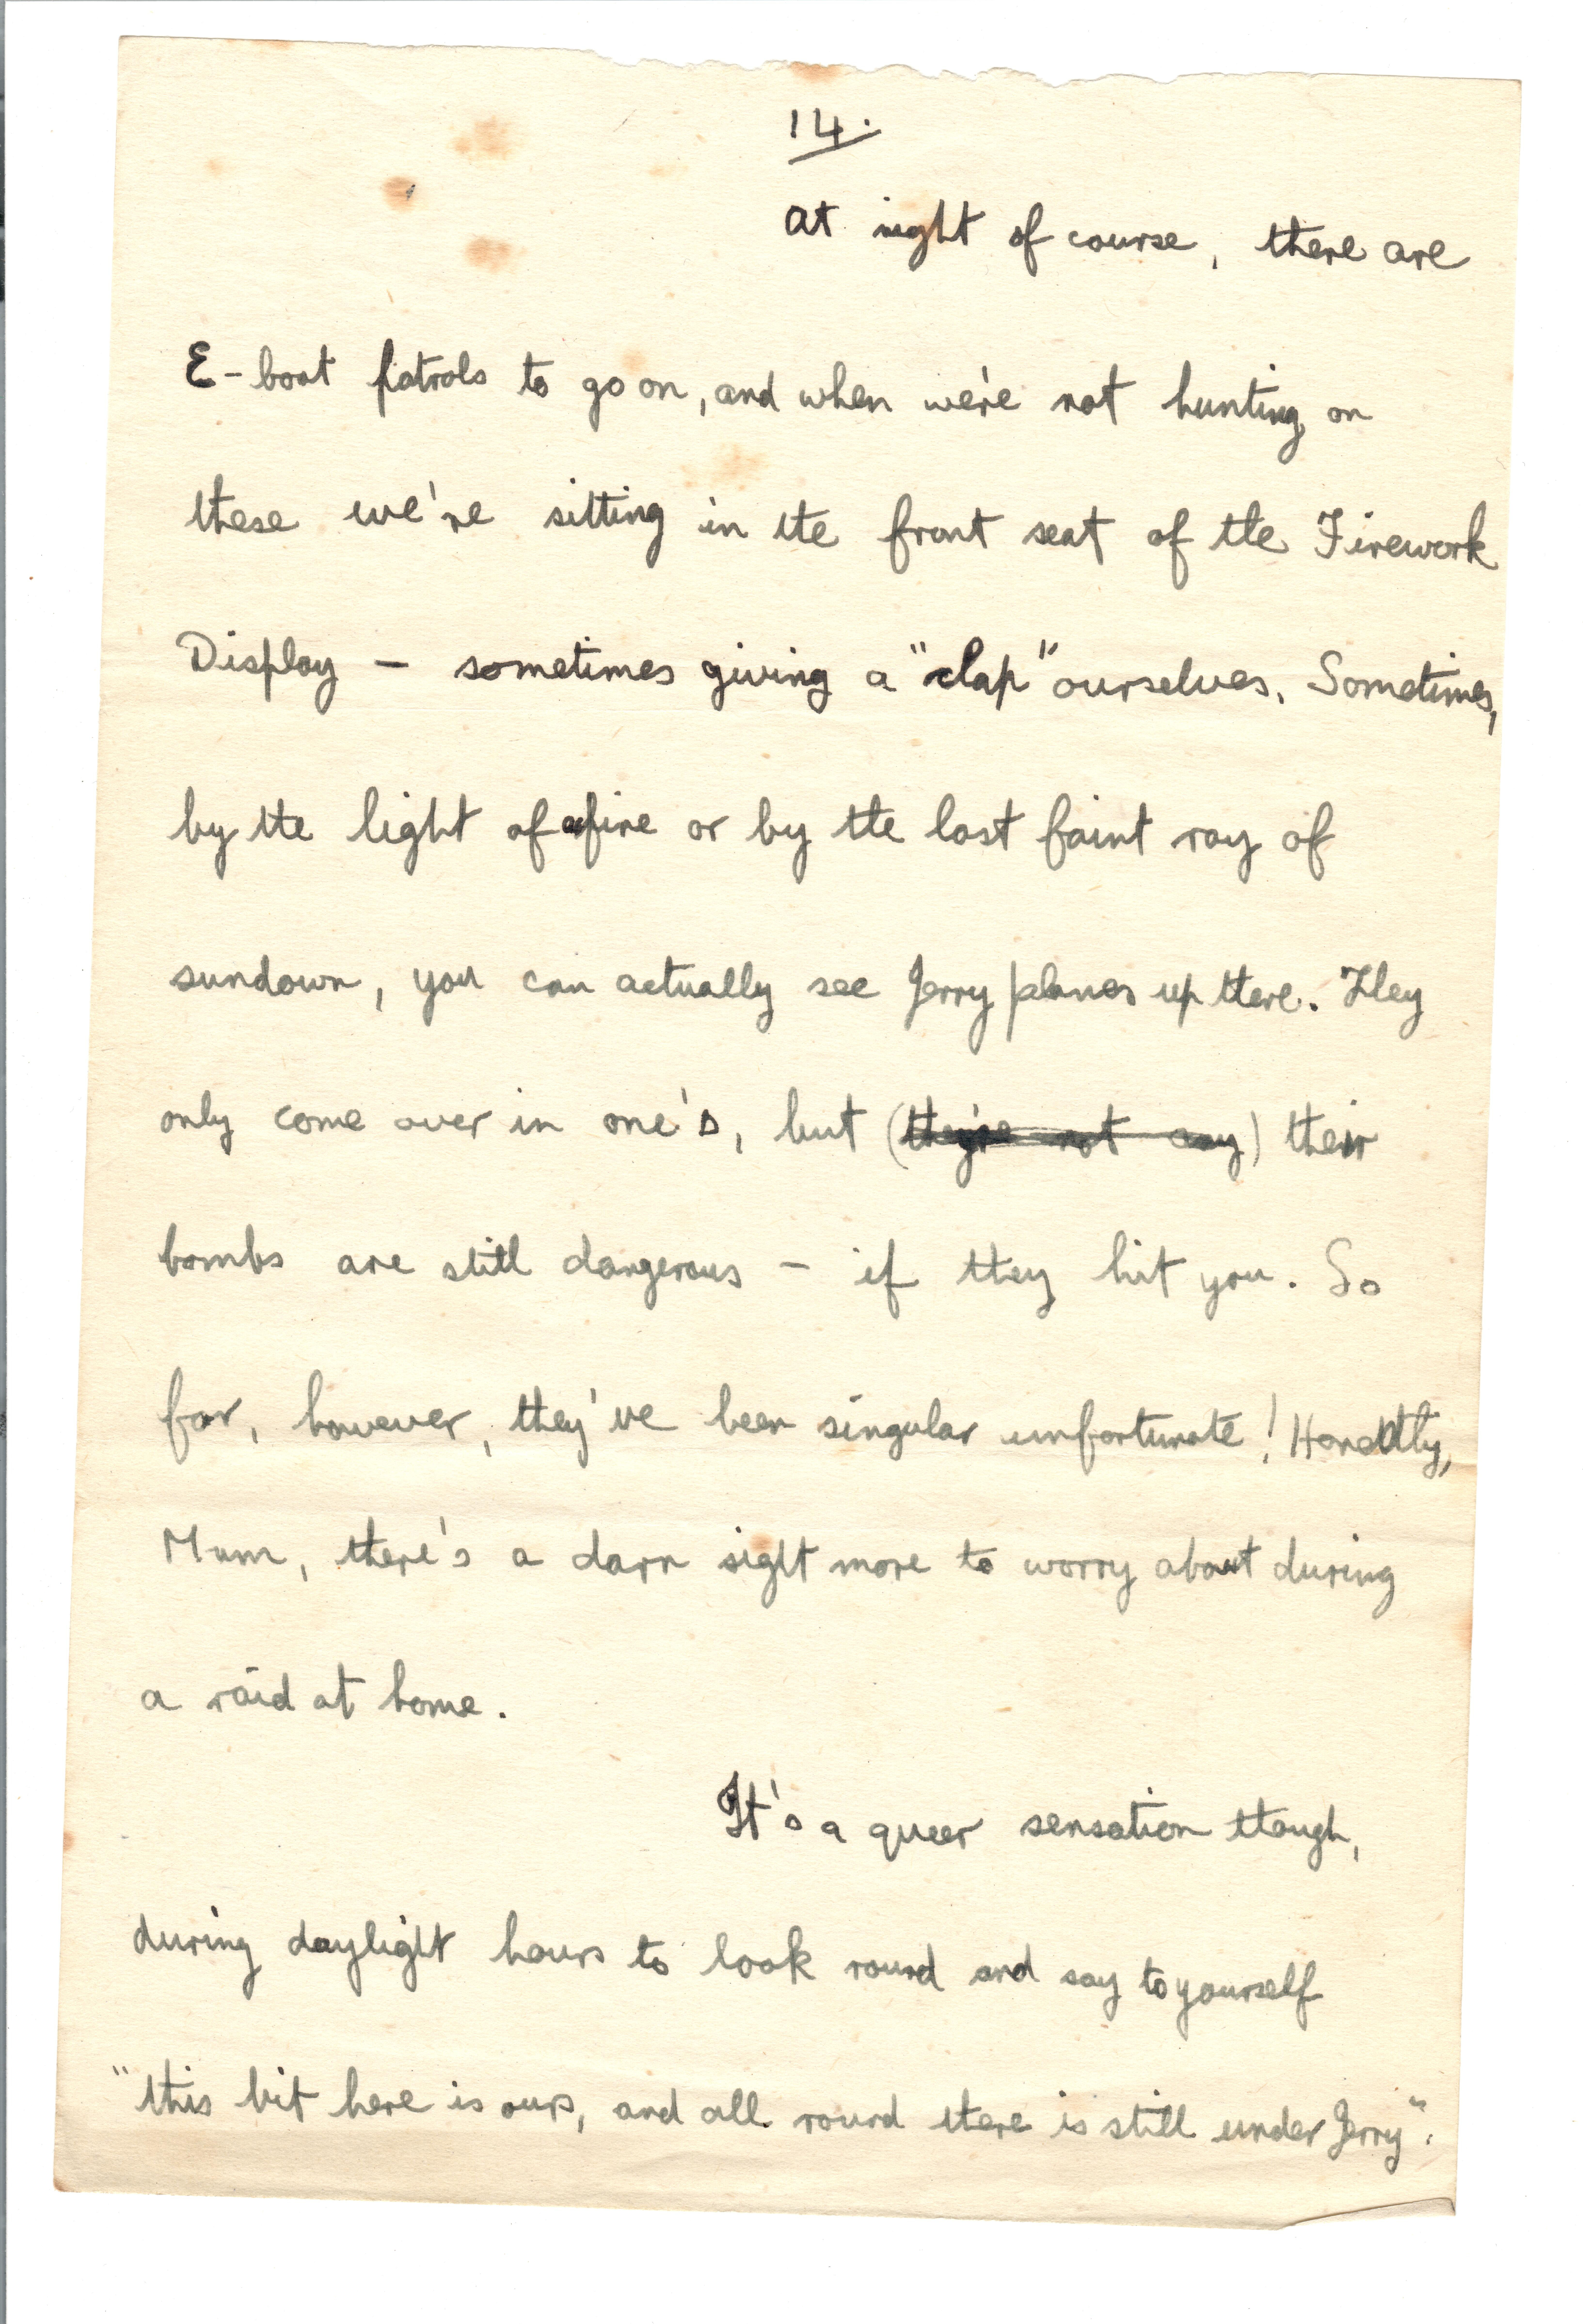 14.
At night of course, there are
E-boat patrols to go on, and when we're not hunting on
these we're sitting in the front seat of the Firework
Display — sometimes giving a "clap" ourselves. Sometimes,
by the light of a fire or by the last faint ray of
sundown, you can actually see Jerry planes up there. They
only come over in one's, but (they're not any) their
bombs are still dangerous — if they hit you. So
far, however, they've been singular unfortunate! Honestly,
Mum, there's a darn sight more to worry about during
a raid at home.
It's a queer sensation though,
during daylight hours to look round and say to yourself
"this bit here is ours, and all round there is still under Jerry".